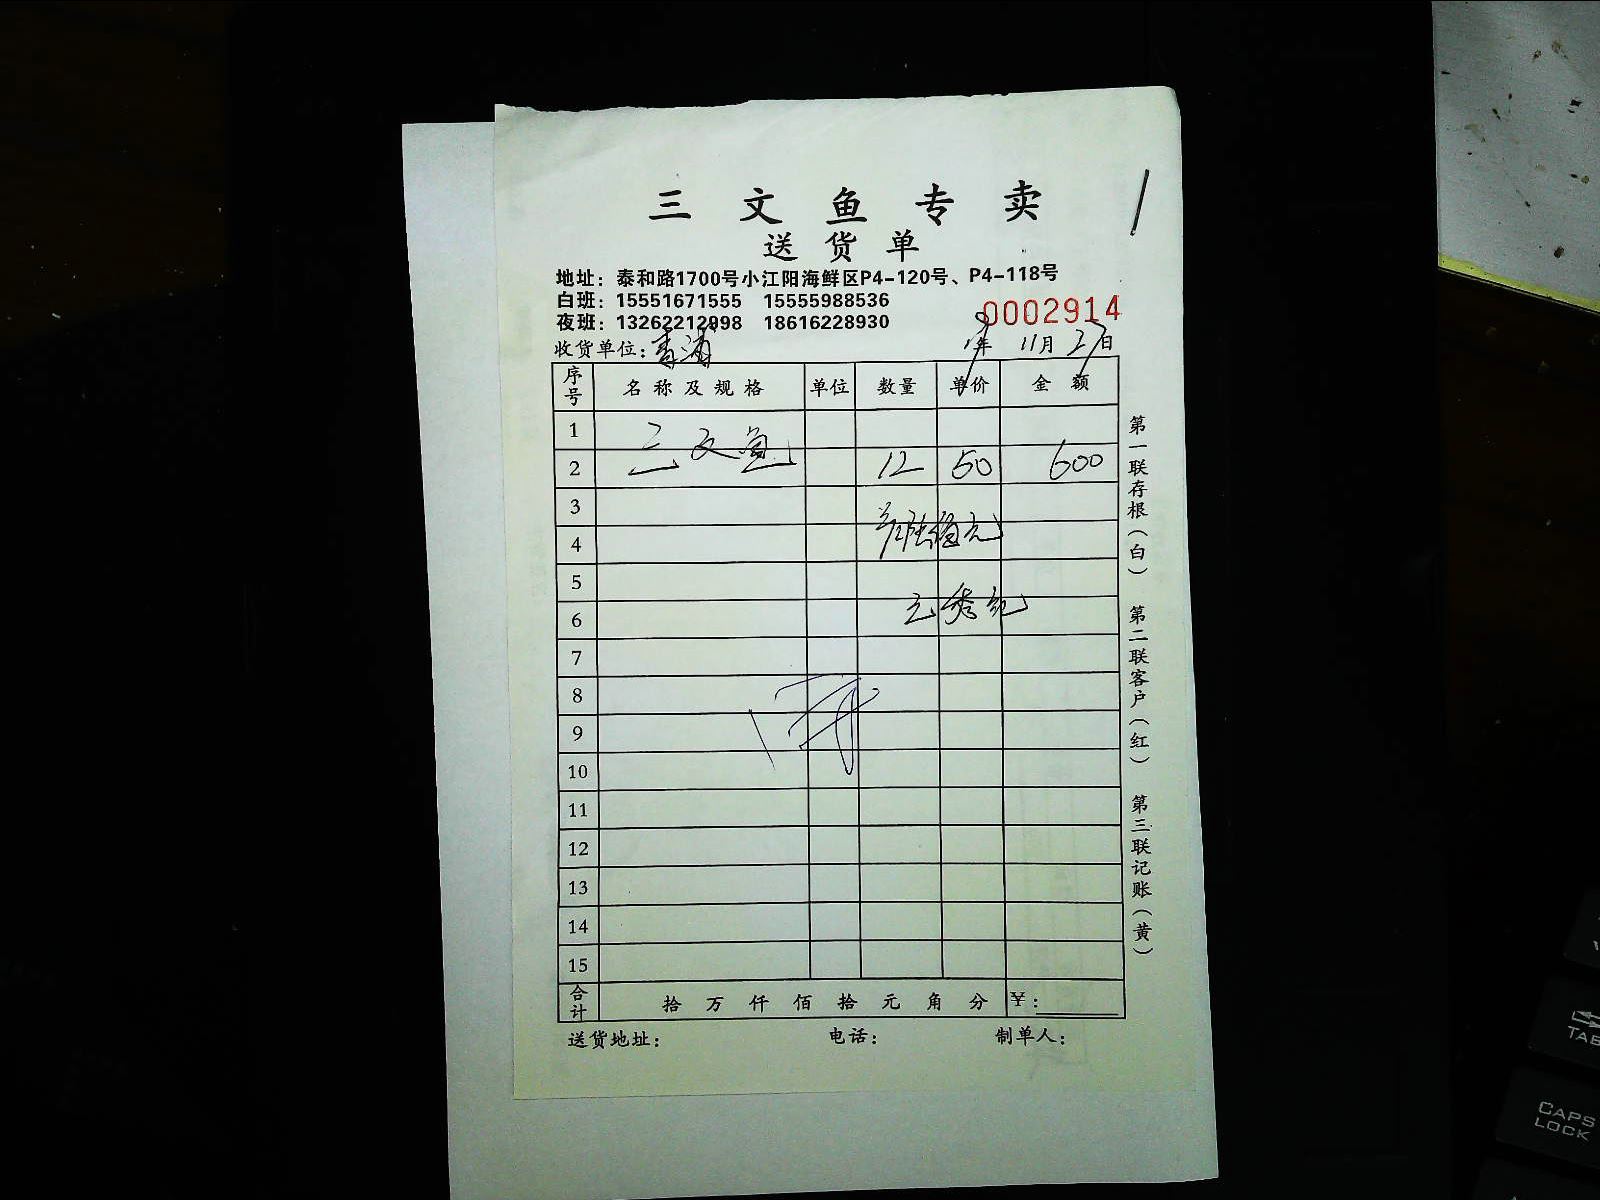 三文鱼专卖
送货单
地址：泰和路1700号小江阳海鲜区P4-120号、P4-118号
白班：15551671555 15555988536
夜班：13262212998 18616228930
0002914
收货单位：青浦 年 11月 27日
序号 名称及规格 单位 数量 单价 金额
1
三文鱼
2 12 50 600
3
4
5
6
7
8
9
10
11
12
13
14
15
合计 拾 万 仟 佰 拾 元 角 分 ￥：
送货地址： 电话： 制单人：
第一联存根（白） 第二联客户（红） 第三联记账（黄）
TAB
CAPS LOCK